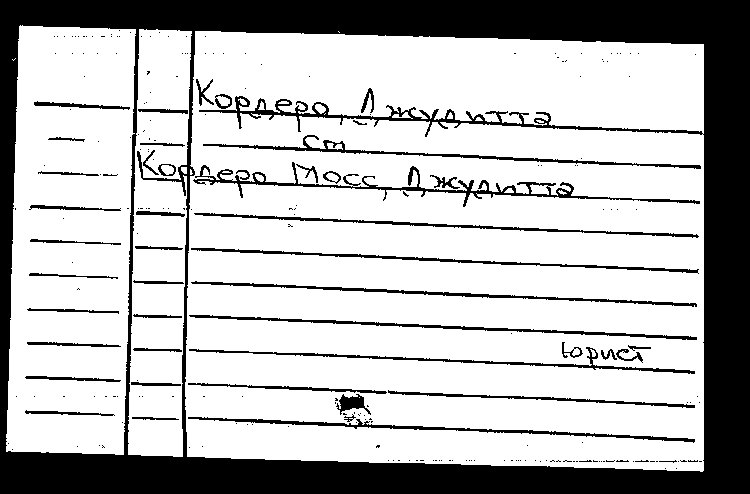 Кордеро, Джудитта
см
Кордеро Мосс, Джудитта
юрист